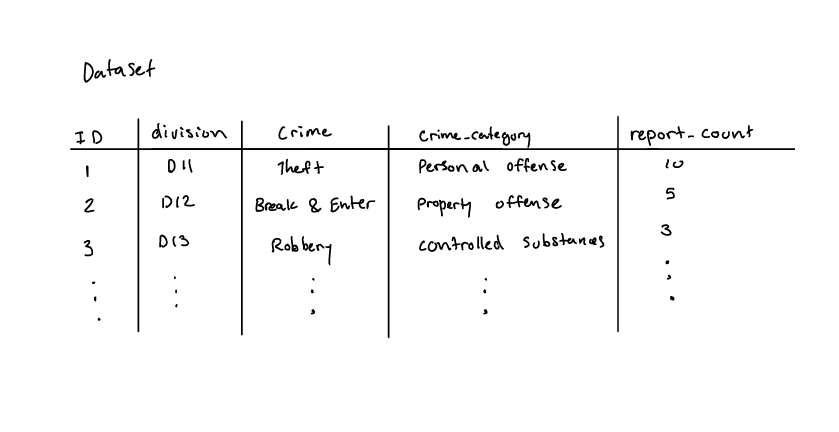 Dataset
ID division Crime Crime_category report_count
1 D11 Theft Personal offense 10
2 D12 Break & Enter Property offense 5
3 D13 Robbery controlled substances 3